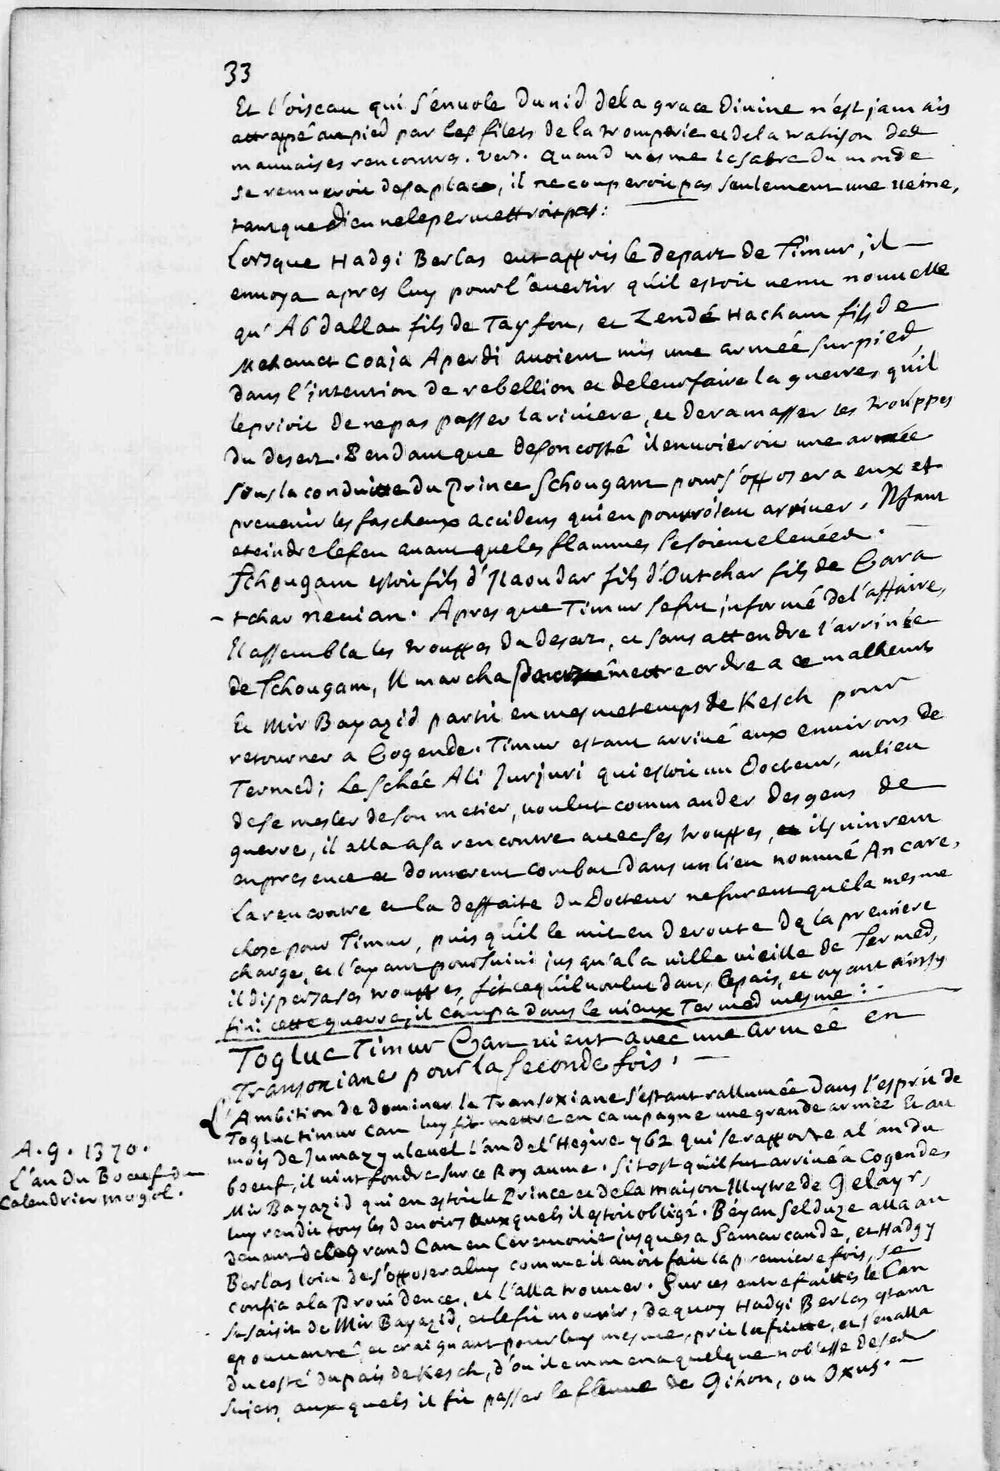 33
Et l'oiseau qui s'enuole du nid de la grace Divine n'est jamais
attrappé au pied par les filets de la tromperie et de la trahison des
mauuaises rencontres. vers. quand mesme le sabre du monde
se remueroit de sa place, il ne couperoit pas seulement une veine,
tant que Dieu ne le permettroit pas:
Lorsque Hadgi Berlas eut appris le depart de Timur, il
enuoya apres luy pour l'auertir qu'il estoit venu nouuelle
qu'Abdalla fils de Tayfou, et Zendé Hacham fils de
Mehemet Coaja Aperdi auoient mis une armée sur pied,
dans l'intention de rebellion et de leur faire la guerres qu'il
le prioit de ne pas passer la riuiere, et de ramasser les trouppes
du desert. Pendant que de son costé il enuoieroit une armée
sous la conduitte du Prince Schougam pour s'opposer a eux et
preuenir les fascheux accidens qui en pourroient arriuer. Il faut
eteindre le feu auant que les flammes se soient eleuées.
Tchougam estoit fils d'Ilaoudar fils d'Outchar fils de Cara
-tchar neuian. Apres que Timur se fut informé de l'affaire,
Il assembla les trouppes du desert, et sans attendre l'arriuée
de Tchougam, Il marcha mettre ordre a ce malheurs
Et Mir Bayazid partit en mesme temps de Kesch pour
retourner a Cogende. Timur estant arriué aux enuirons de
Termed; Le Schée Ali Jurjuri qui estoit un Docteur, au lieu
de se mesler de son metier, voulut commander des gens de
guerre, il alla a sa rencontre auec ses trouppes, et ils vinrent
en presence et donnerent combat dans un lieu nommé Ancare,
La rencontre et la deffaite du Docteur ne furent que la mesme
chose pour Timur, puis qu'il le mit en deroute de la premiere
charge, et l'ayant poursuiui jusqu'a la ville vieille de Termed,
il dispersa ses trouppes, fit ce qu'il voulut dans le païs, et ayant ainsy
fini cette guerre, il campa dans le vieux Termed mesme:
Togluc Timur Can vient avec une armée en
Transoxiane pour la seconde fois.
L'Ambition de dominer la Transoxiane s'estant rallumée dans l'esprit de
Togluc timur can luy fit mettre en campagne une grande armée Et au
mois de Jumazyuleuel l'an de l'Hegire 762 qui se rapporte al'an du
boeuf, il vint fondre sur ce Royaume. Sitost qu'il fut arriué a Cogende,
Mir Bayazid qui en estoit le Prince et de la maison Illustre de Gelayr,
luy rendit tous les deuoirs auxquels il estoit obligé. Béyan Selduze alla au
deuant de ce grand Can en Ceremonie jusques a Samarcande, et Hadgy
Berlas loin de s'opposer a luy comme il auoit fait la premiere fois, se
confia a la Prouidence, et l'alla trouuer. Sur ces entrefaittes le Can
se saisit de Mir Bayazid, et le fit mourir, de quoy Hadgi Berlas estant
epouuanté, et craignant pour luy mesme, prit la fuitte, et s'en alla
du costé du païs de Kesch, d'où il emmena quelque noblesse de ses
Sujets, aux quels il fit passer le fleuue de Gihon, ou Oxus.
A. G. 1370.
L'an du Boeuf du
Calendrier mogol.